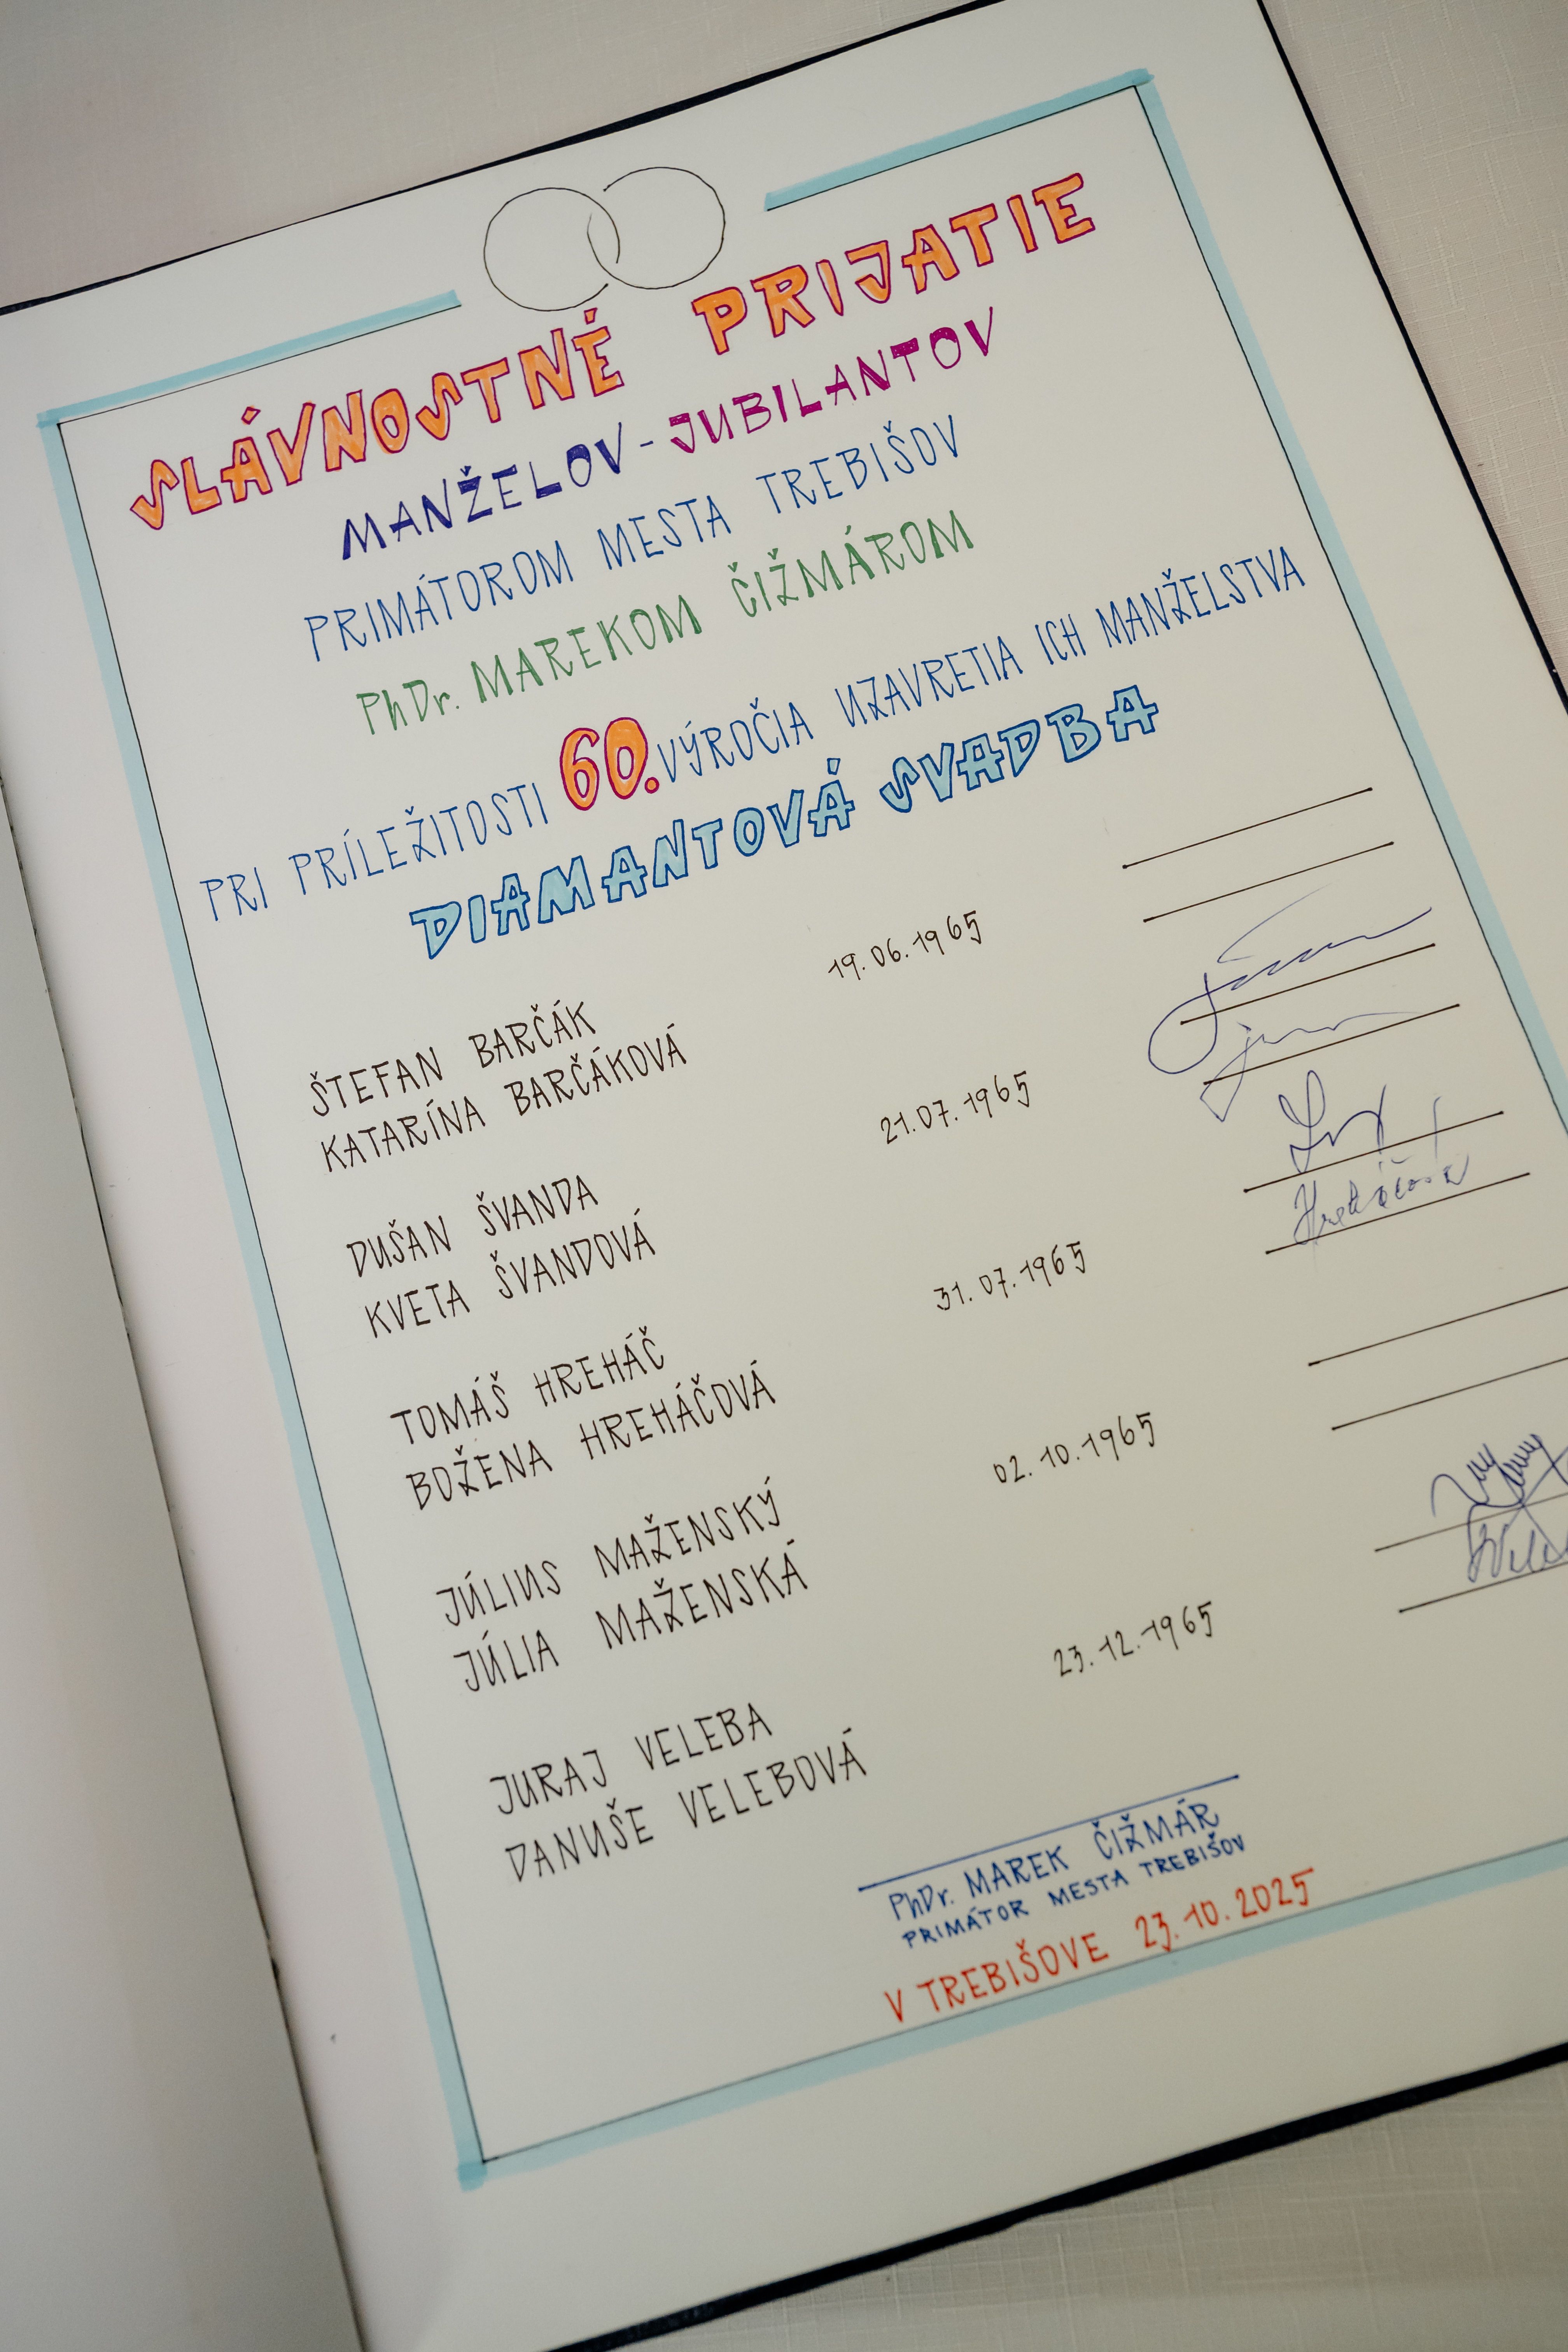 SLÁVNOSTNÉ PRIJATIE
MANŽELOV - JUBILANTOV
PRIMÁTOROM MESTA TREBIŠOV
PhDr. MAREKOM ČIŽMÁROM
PRI PRÍLEŽITOSTI 60. VÝROČIA UZAVRETIA ICH MANŽELSTVA
DIAMANTOVÁ SVADBA
19.06.1965
ŠTEFAN BARČÁK
KATARÍNA BARČÁKOVÁ
21.07.1965
DUŠAN ŠVANDA
KVETA ŠVANDOVÁ
31.07.1965
TOMÁŠ HREHÁČ
BOŽENA HREHÁČOVÁ
Hreháčová
02.10.1965
JÚLIUS MAŽENSKÝ
JÚLIA MAŽENSKÁ
23.12.1965
JURAJ VELEBA
DANUŠE VELEBOVÁ
PhDr. MAREK ČIŽMÁR
PRIMÁTOR MESTA TREBIŠOV
V TREBIŠOVE 23.10.2025